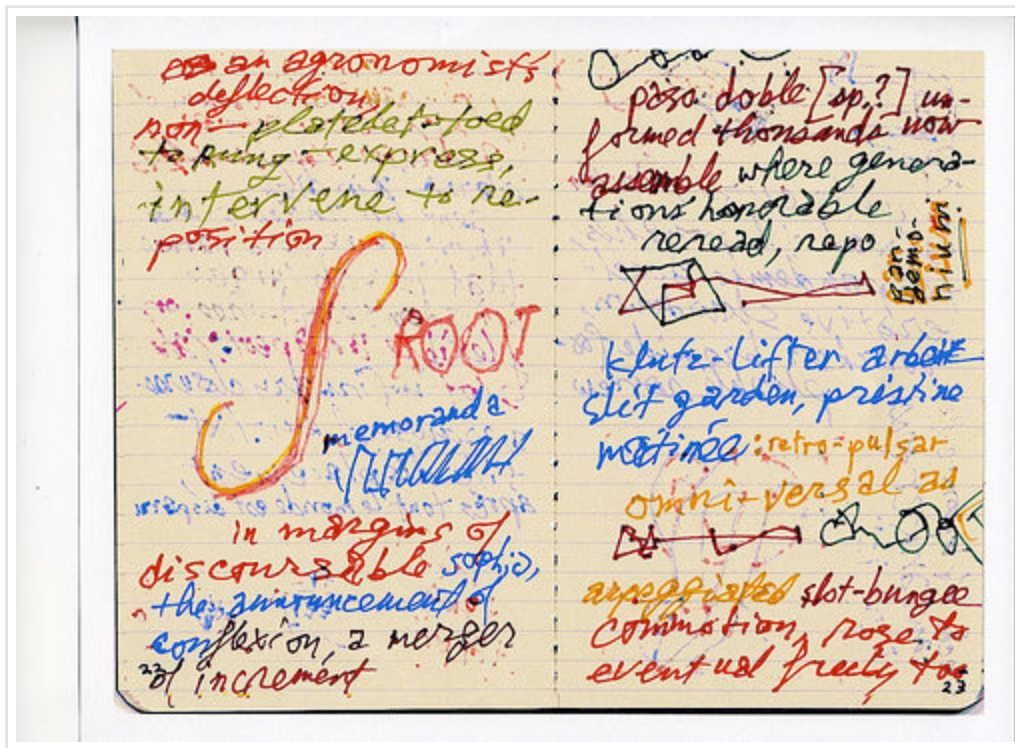 an agronomists
deflection
non- platelet-toed
to rung-express,
intervene to re-
position
ROOT
memoranda
in margins of
discourseable sophic,
the announcement of
conflexion, a merger
of increment
22
paso doble [sp.?] un-
formed thousands now
assemble where genera-
tions honorable
reread, repo
pan-
demo-
nium
klutz-lifter arbeit
slit garden, pristine
matinée: retro-pulsar
omni-versal as
arpeggiated slot-bungee
commotion, rose to
eventual freely too
23